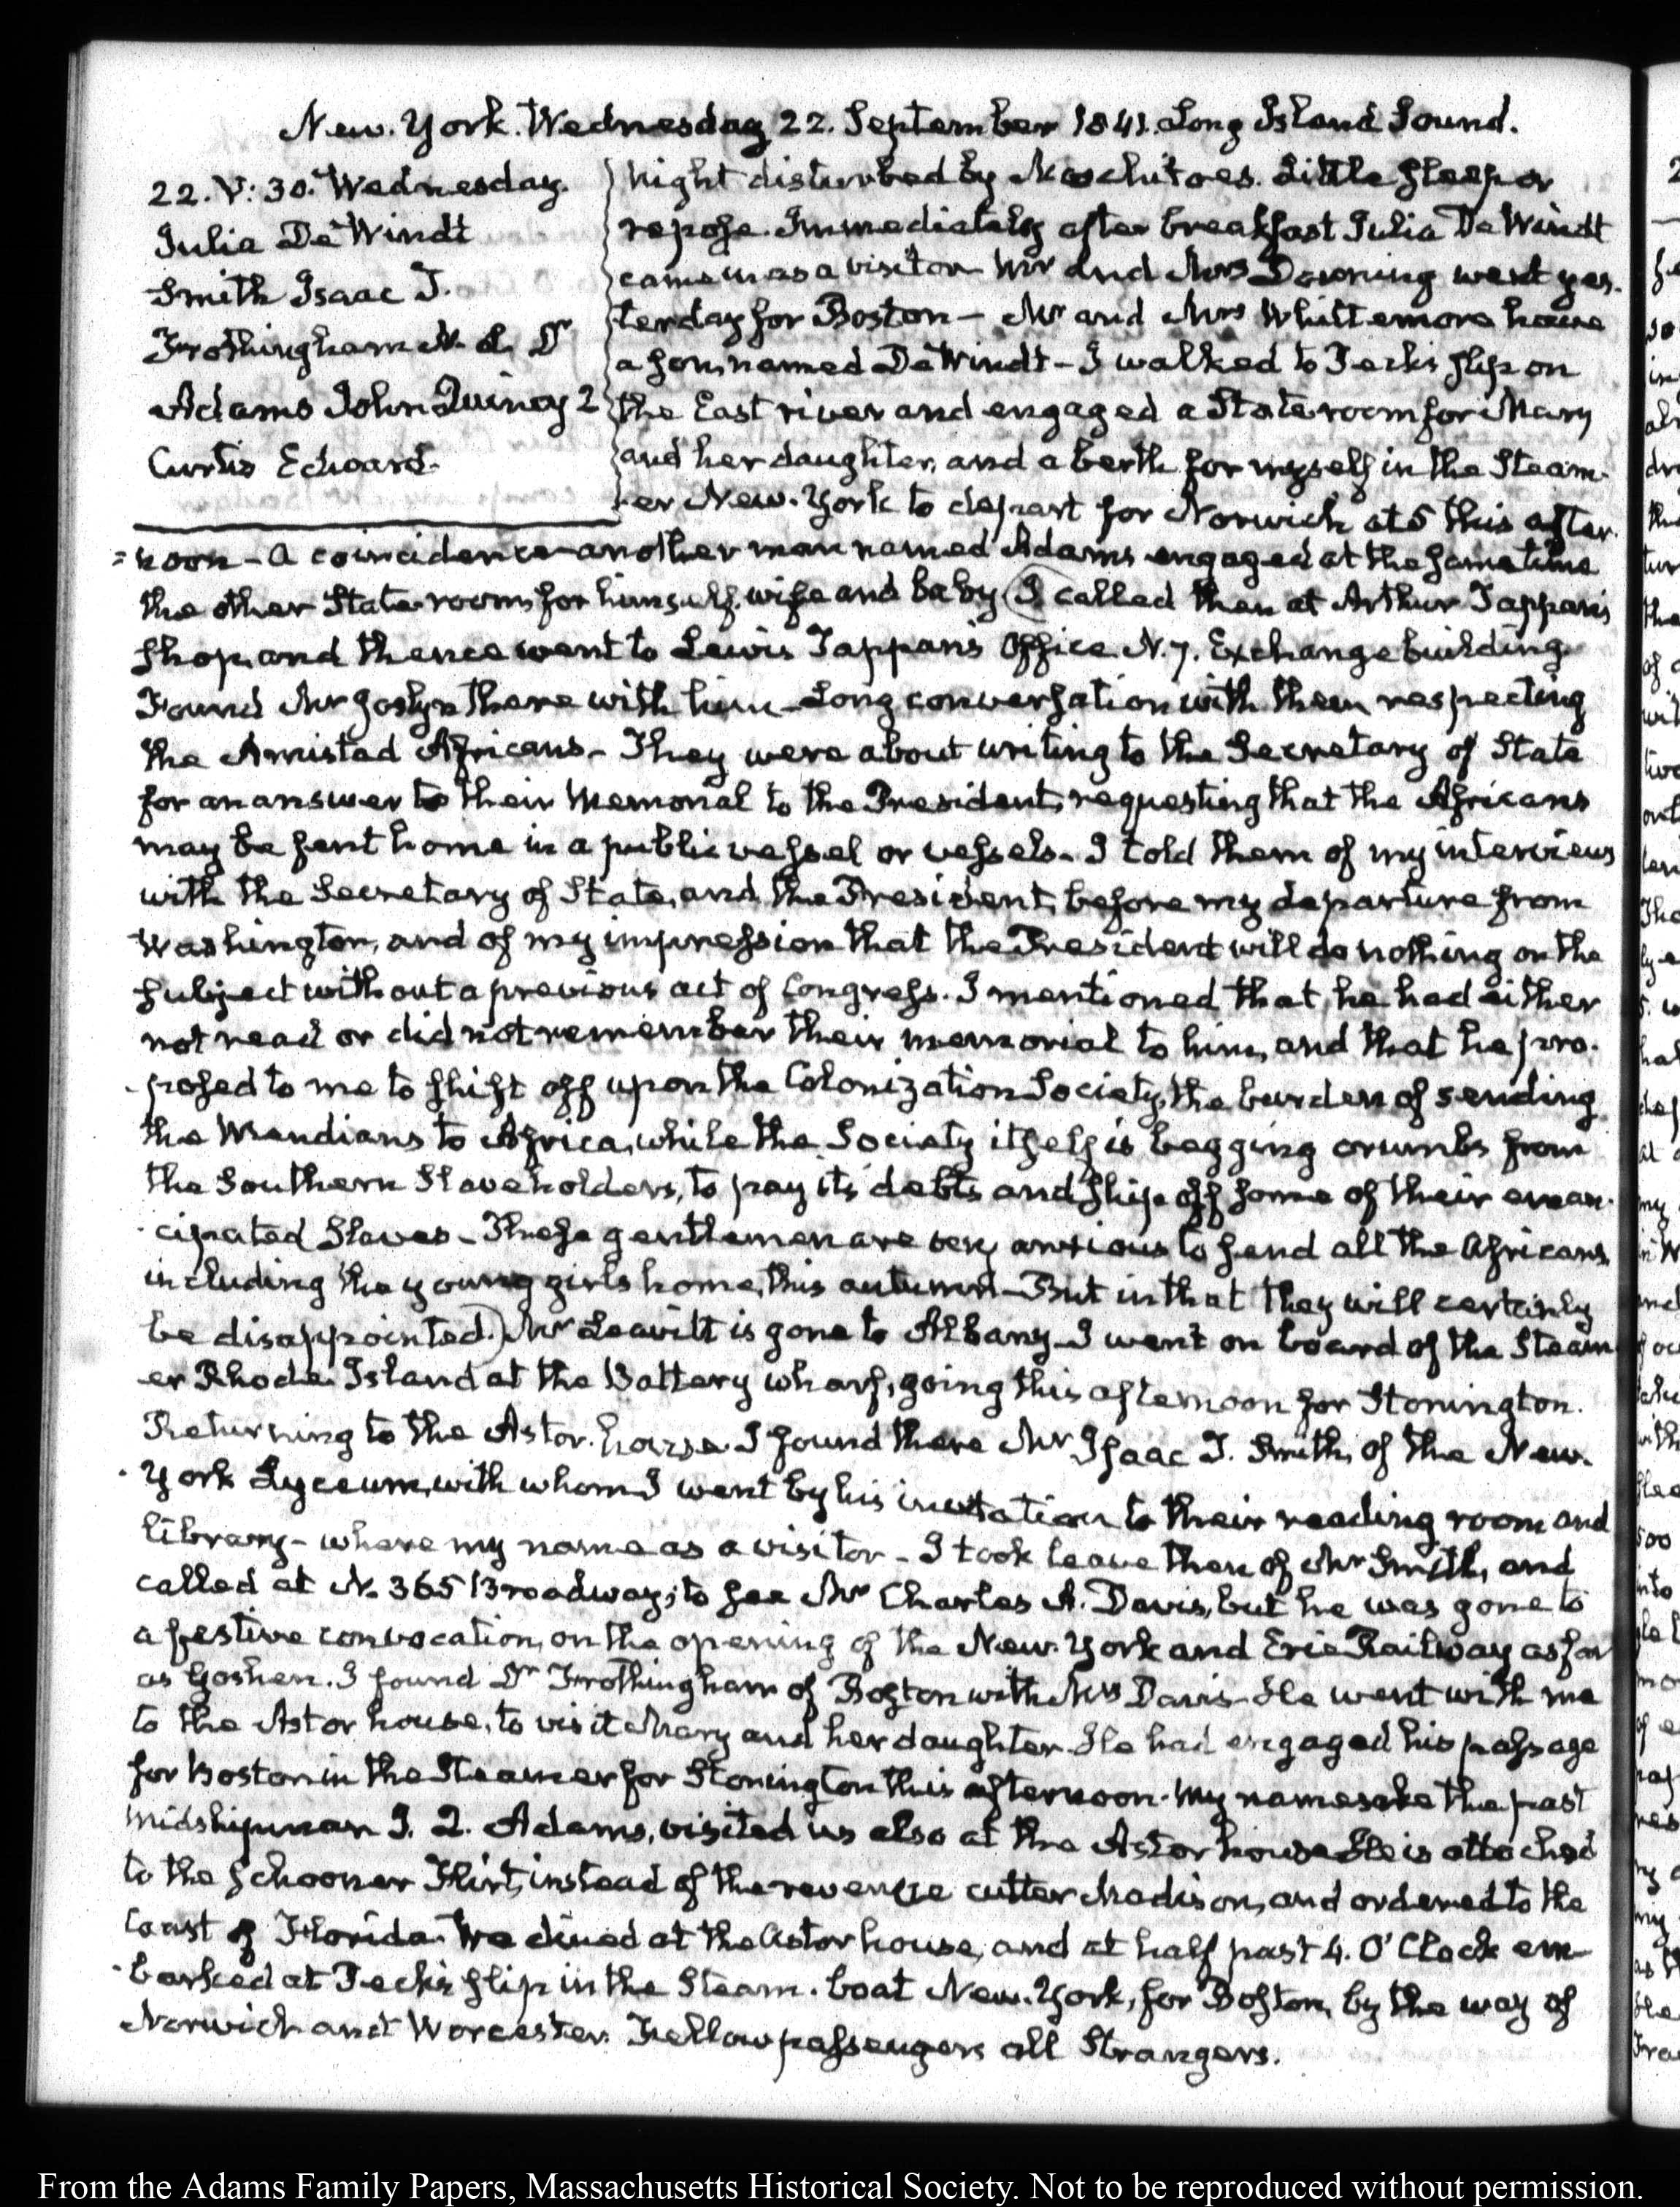 New-York. Wednesday 22. September 1841. Long Island Sound.
22. V:30. Wednesday.
Julia De Windt
Smith Isaac T.
Frothingham N. L. Dr
Adams John Quincy 2
Curtis Edward.
Night disturbed by Moschitoes. Little sleep or
repose. Immediately after breakfast Julia De Windt
came in as a visitor Mr and Mrs Downing went yes-
terday for Boston — Mr and Mrs Whittemore have
a son, named De Windt — I walked to Peck's slip on
the East river and engaged a State room for Mary
and her daughter, and a berth for myself in the Steam-
-er New-York to depart for Norwich at 5 this after-
=noon — A coincidence another man named Adams engaged at the same time
the other State-room for himself, wife and baby (I called then at Arthur Tappan's
shop, and thence went to Lewis Tappan's Office N. 7. Exchange building
Found Mr Joslyn there with him — Long conversation with them respecting
the Amistad Africans — They were about writing to the Secretary of State
for an answer to their Memorial to the President, requesting that the Africans
may be sent home in a public vessel or vessels — I told them of my interviews
with the Secretary of State, and the President, before my departure from
Washington, and of my impression that the President will do nothing on the
subject without a previous act of Congress. I mentioned that he had either
not read or did not remember their memorial to him, and that he pro-
-posed to me to shift off upon the Colonization Society, the burden of sending
the Mendians to Africa, while the Society itself is begging crumbs from
the Southern Slaveholders, to pay its debts and ship off some of their eman-
-cipated Slaves — These gentlemen are very anxious to send all the Africans,
including the young girls home, this autumn — But in that they will certainly
be disappointed.) Mr Leavitt is gone to Albany — I went on board of the Steam
-er Rhode Island at the Battery wharf, going this afternoon for Stonington.
Returning to the Astor-house I found there Mr Isaac T. Smith, of the New-
-York Lyceum, with whom I went by his invitation to their reading room and
library — where my name as a visitor — I took leave then of Mr Smith, and
called at N. 365 Broadway, to see Mr Charles A. Davis, but he was gone to
a festive convocation, on the opening of the New-York and Erie Railway as far
as Goshen. I found Dr Frothingham of Boston with Mrs Davis — He went with me
to the Astor house, to visit Mary and her daughter He had engaged his passage
for Boston in the Steamer for Stonington this afternoon. My namesake the past
midshipman J. Q. Adams, visited us also at the Astor house He is attached
to the Schooner Flirt, instead of the revenue cutter Madison, and ordered to the
Coast of Florida. We dined at the Astor house, and at half past 4. O'Clock em-
-barked at Peck's slip in the Steam-boat New-York, for Boston, by the way of
Norwich and Worcester. Fellow passengers all Strangers.
From the Adams Family Papers, Massachusetts Historical Society. Not to be reproduced without permission.